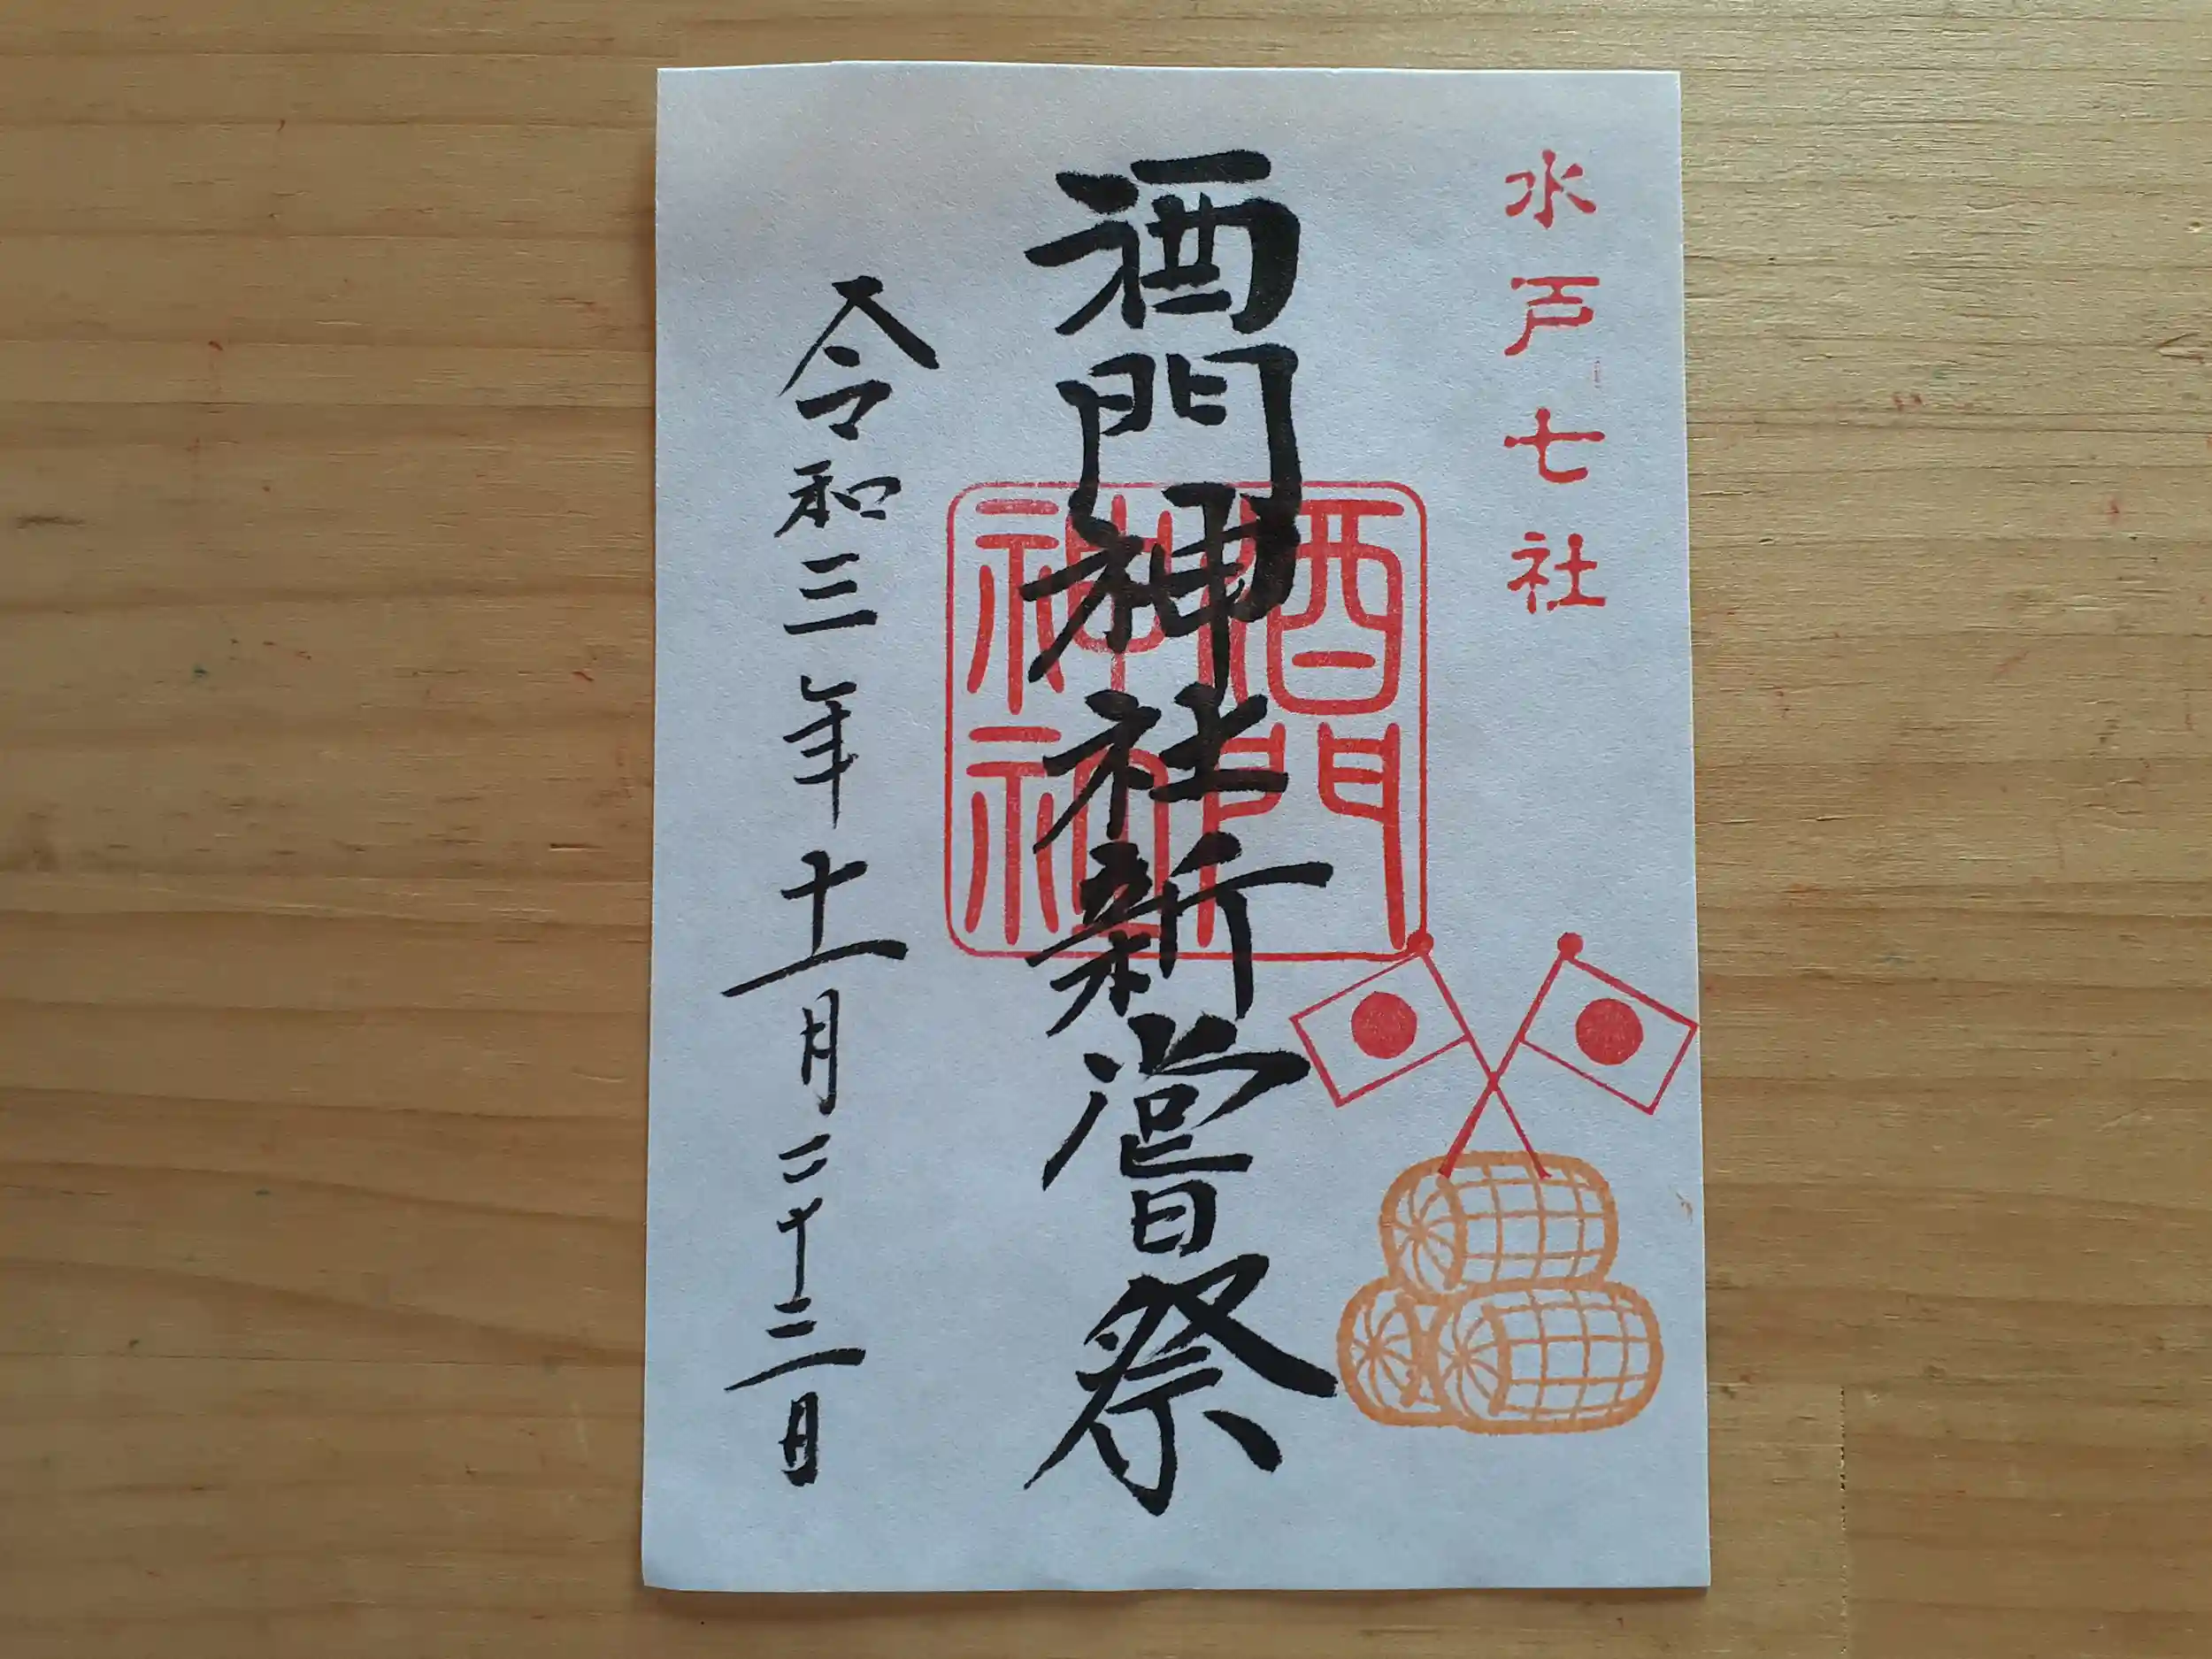 水戸七社
酒門神社新嘗祭
酒門神社
令和三年十一月二十三日